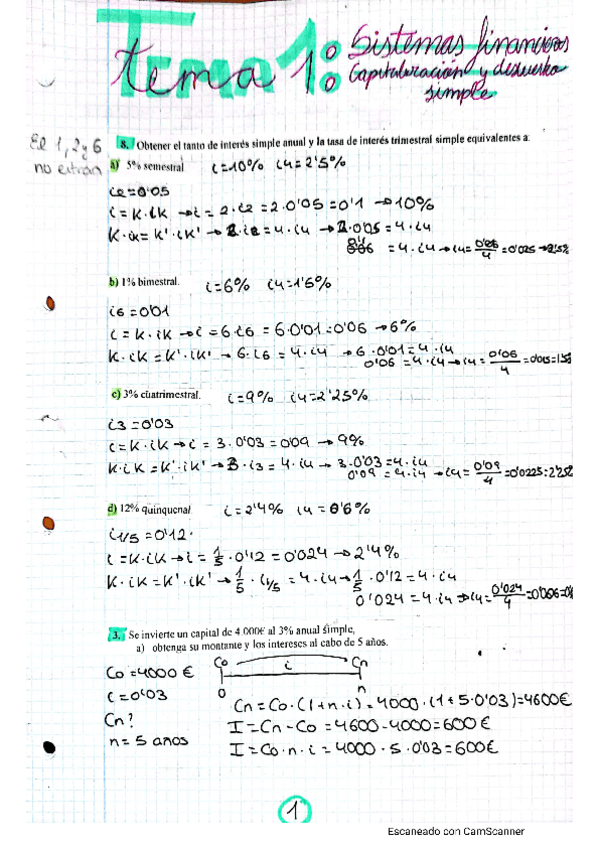 Tema 1:
tema 1:
Sistemas financieros
Capitalización y descuento
simple
El 1, 2 y 6
no entran
8. Obtener el tanto de interés simple anual y la tasa de interés trimestral simple equivalentes a:
a) 5% semestral i=10% i4=2'5%
i2=0'05
i=K·iK → i=2·i2=2·0'05=0'1 → 10%
K·iK=K'·iK' → 2·i2=4·i4 → 2·0'05=4·i4
=4·i4 → i4= =0'025
b) 1% bimestral. i=6% i4=1'5%
i6=0'01
i=K·iK → i=6·i6=6·0'01=0'06 → 6%
K·iK=K'·iK' → 6·i6=4·i4 → 6·0'01=4·i4
0'06=4·i4 → i4=0'06/4=0'015
c) 3% cuatrimestral. i=9% i4=2'25%
i3=0'03
i=K·iK → i=3·0'03=0'09 → 9%
K·iK=K'·iK' → 3·i3=4·i4 → 3·0'03=4·i4
0'09=4·i4 → i4=0'09/4=0'0225
d) 12% quinquenal i=2'4% i4=0'6%
i1/5=0'12
i=K·iK → i=1/5·0'12=0'024 → 2'4%
K·iK=K'·iK' → 1/5·i1/5=4·i4 → 1/5·0'12=4·i4
0'024=4·i4 → i4=0'024/4=0'006
3. Se invierte un capital de 4.000€ al 3% anual simple,
a) obtenga su montante y los intereses al cabo de 5 años.
Co i Cn
0 n
Co=4000€
i=0'03
Cn?
n=5 años
Cn=Co·(1+n·i)=4000·(1+5·0'03)=4600€
I=Cn-Co=4600-4000=600€
I=Co·n·i=4000·5·0'03=600€
1
Escaneado con CamScanner